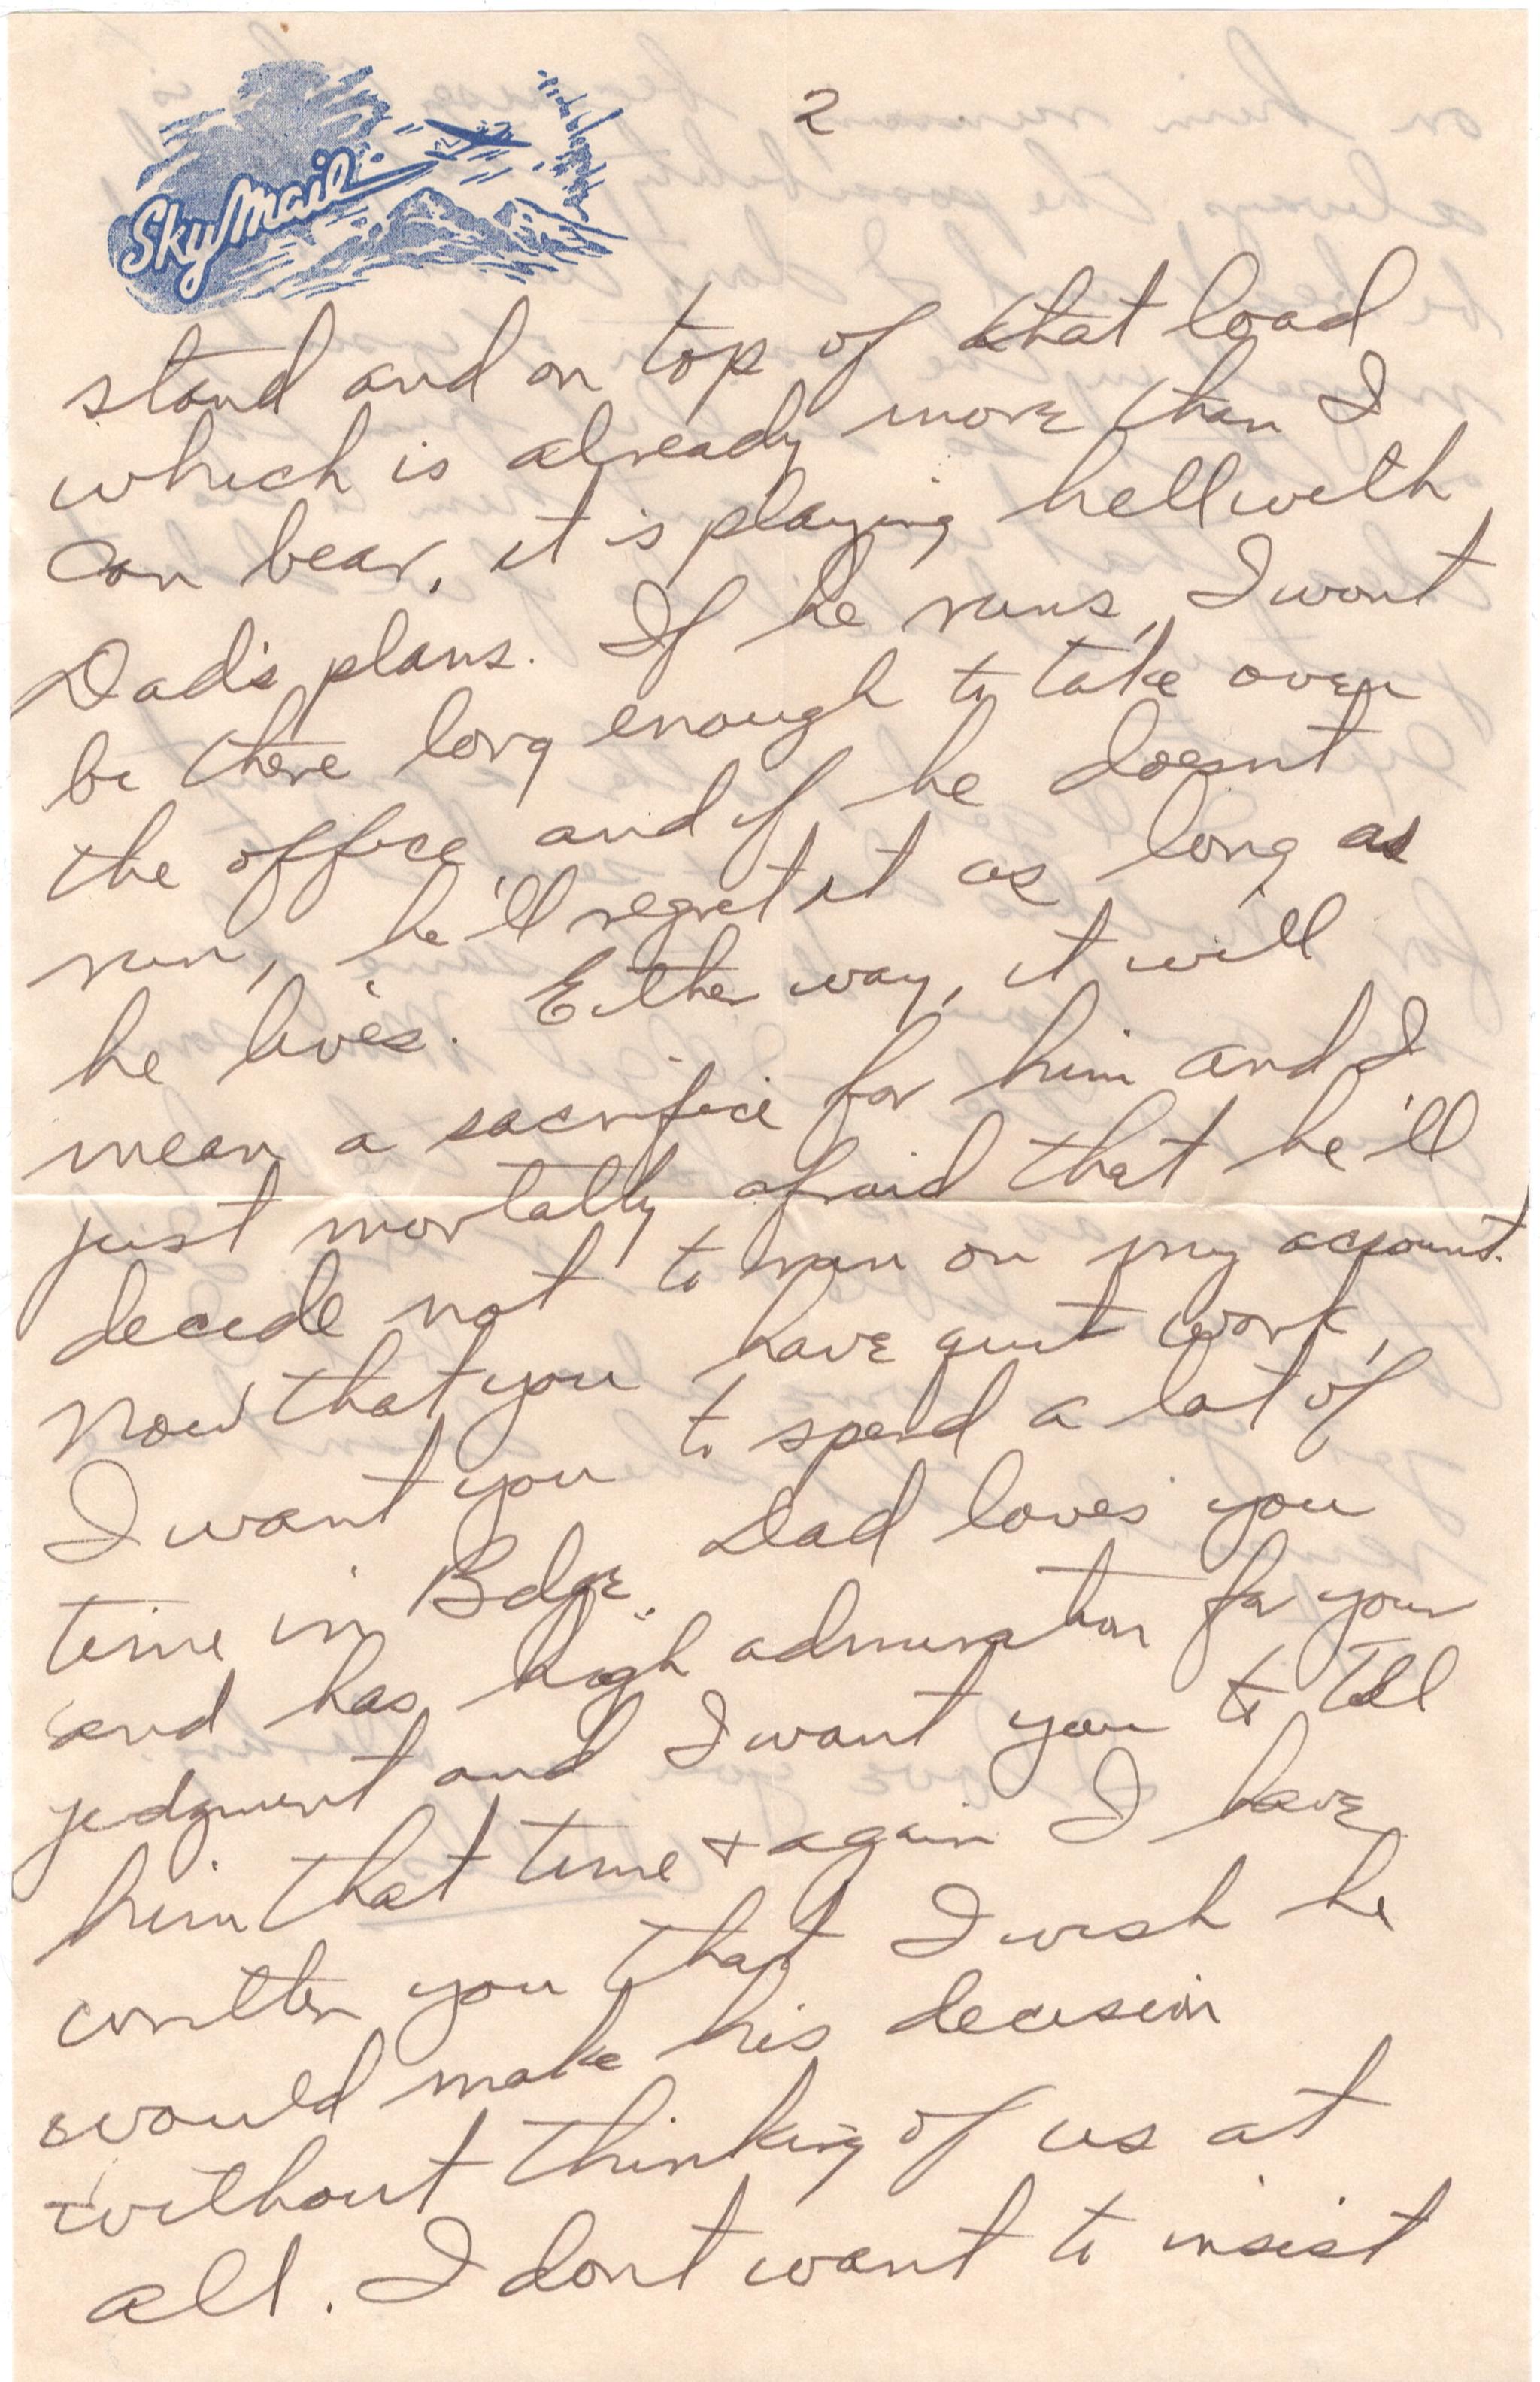 SkyMail
2
stand and on top of that load
which is already more than I
can bear, it is playing hell with
Dad's plans. If he runs, I wont
be there long enough to take over
the office and if he doesnt
run, he'll regret it as long as
he lives. Either way, it will
mean a sacrifice for him and I
just mortally afraid that he'll
decide not to run on my account.
Now that you have quit work,
I want you to spend a lot of
time in Bdge. Dad loves you
and has high admiration for your
judgment and I want you to tell
him that time + again I have
written you that I wish he
would make his decision
without thinking of us at
all. I dont want to insist